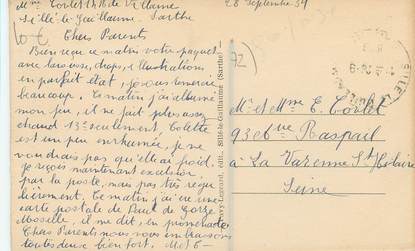 28 Septembre 39
Sillé le Guillaume. Sarthe
10€
72
Chers Parents
Bien reçu ce matin votre paquet
avec brosses, chaps, et Illustrations
en parfait état, je vous remercie
beaucoup. Ce matin j'ai allumé
mon feu, il ne fait plus assez
chaud 13° seulement. Colette
est un peu enrhumée, je ne
voudrais pas qu'elle ait froid.
Je reçois maintenant excelsior
par la poste, mais pas très régu
lièrement. Ce matin j'ai eu une
carte postale de Paul de Gorze
Moselle, il me dit, en promenade
Chers Parents nous vous embrassons
toutes deux bien fort.
édit., Sillé-le-Guillaume (Sarthe)
Mr et Mme E. Torlet
93 6 rue Raspail
à La Varenne St Hilaire
Seine
SILLE